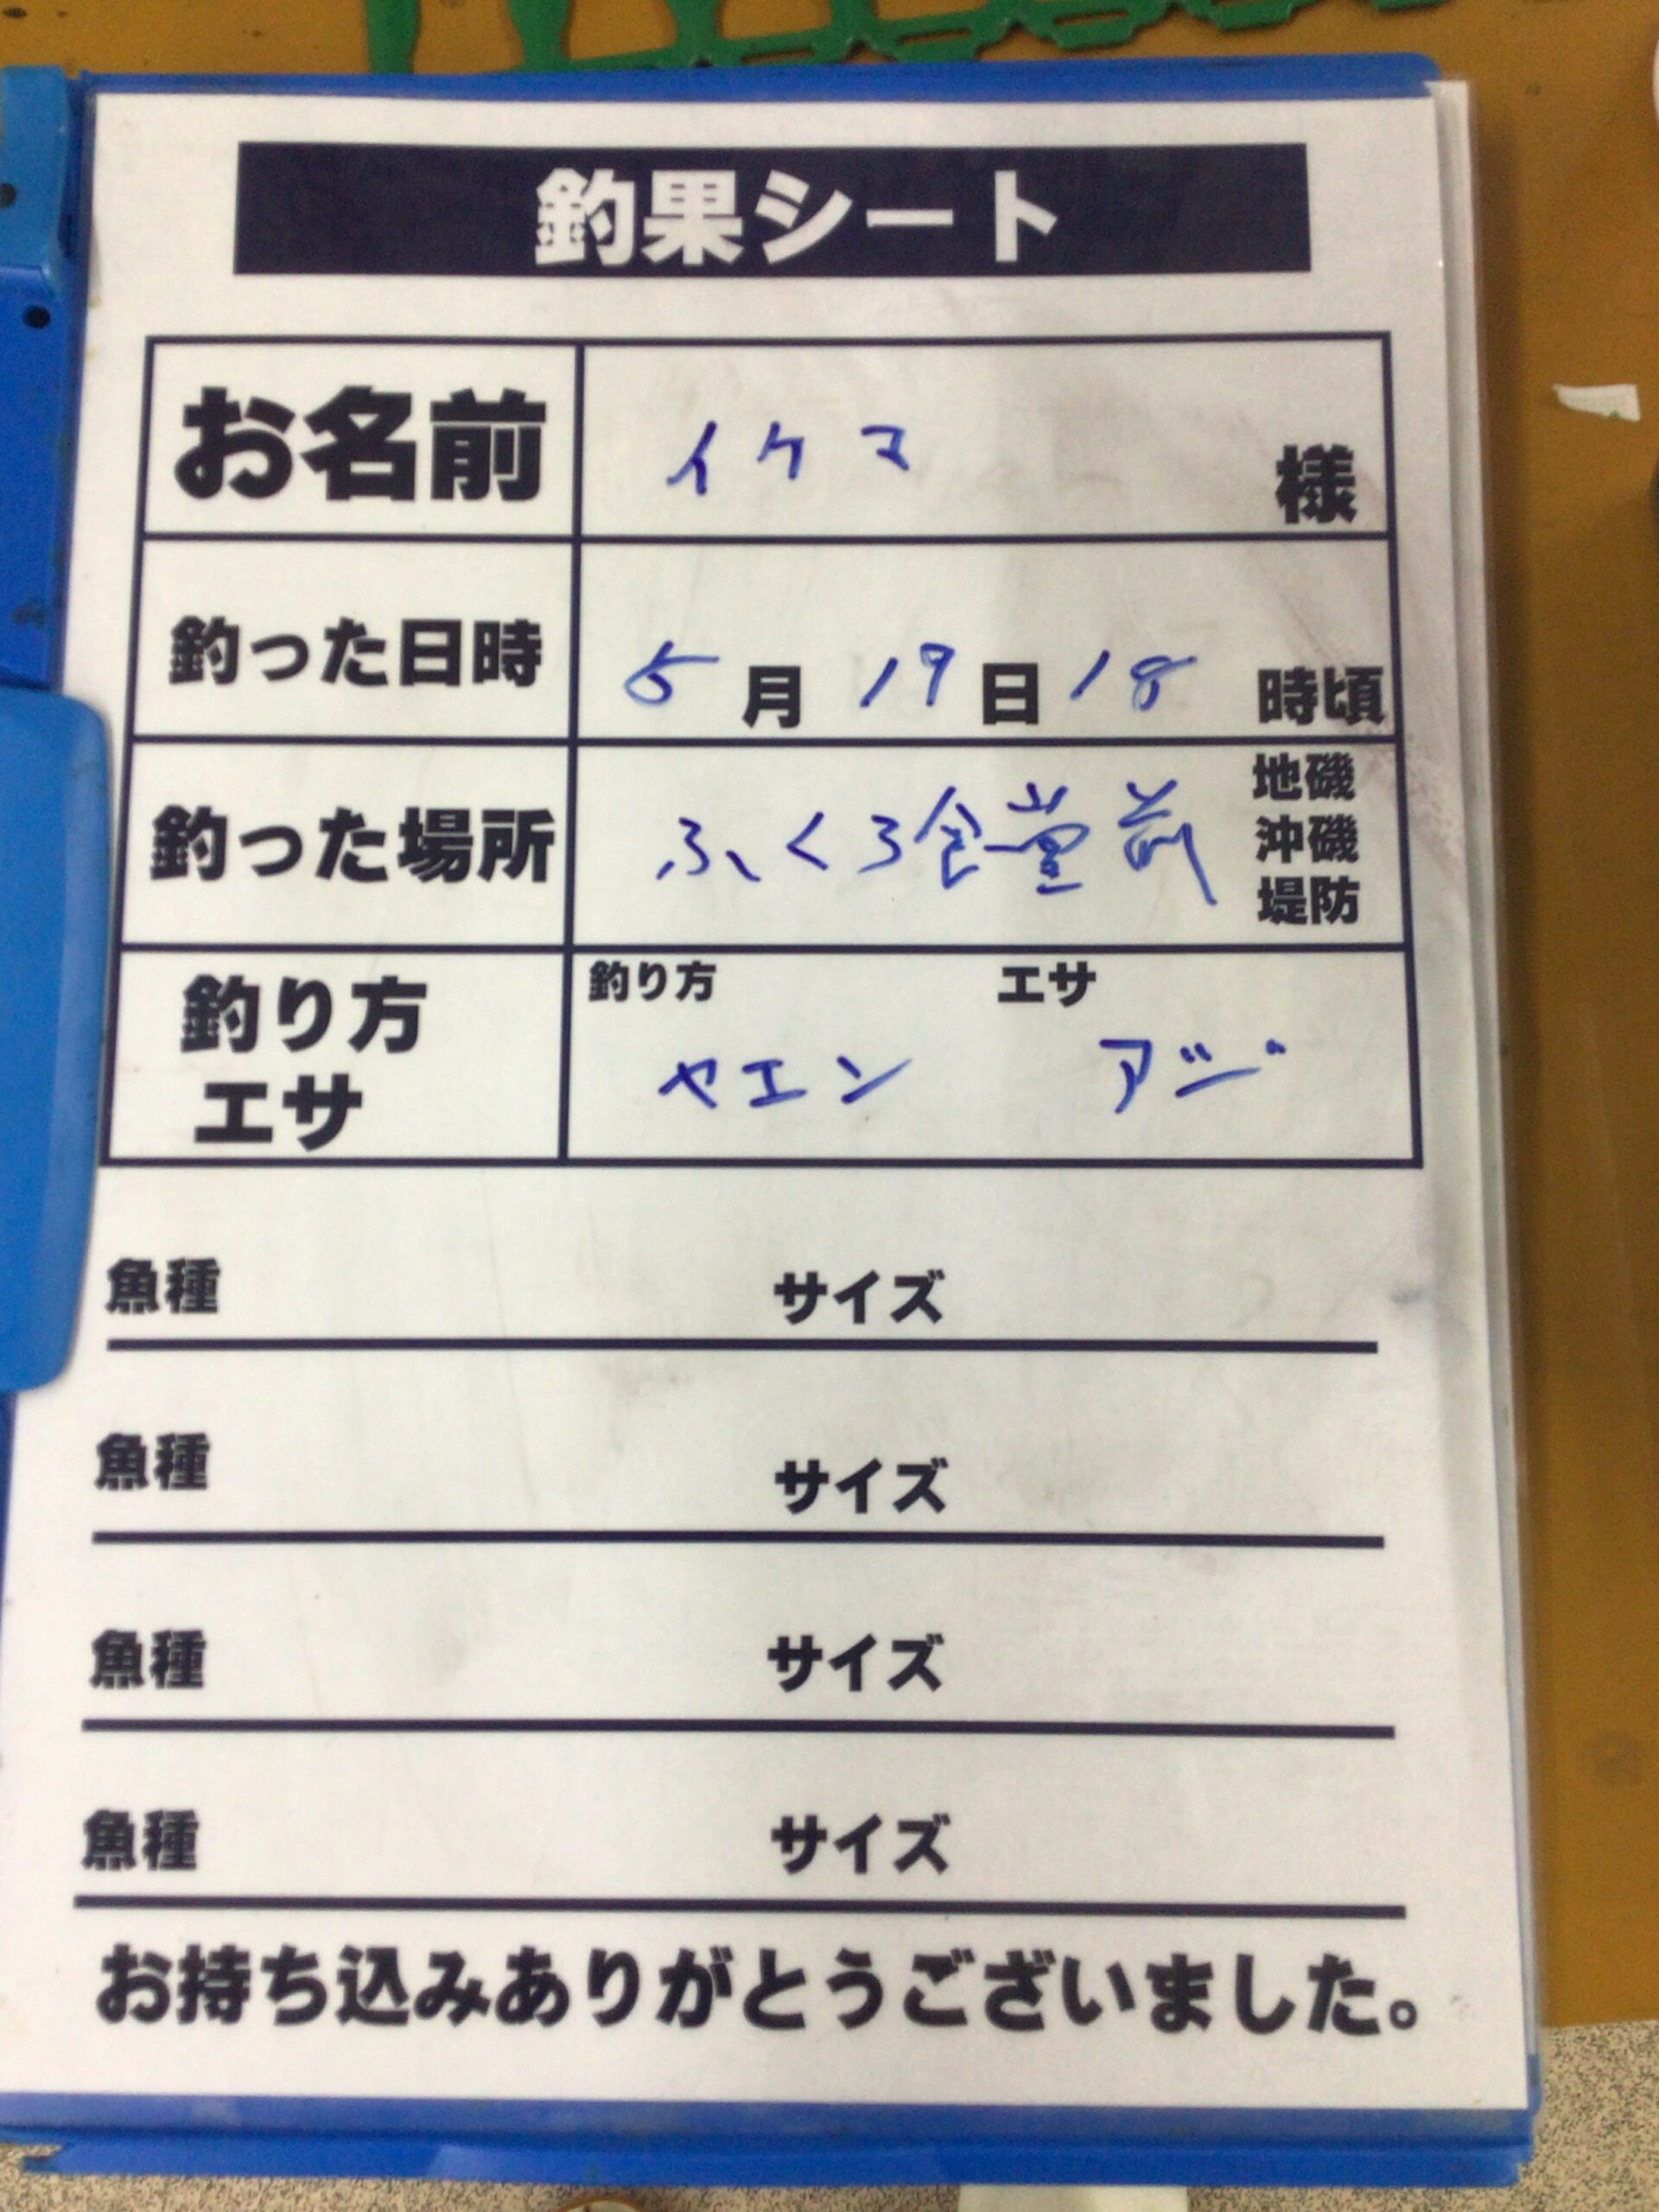 釣果シート
お名前 イケマ 様
釣った日時 5月19日18時頃
釣った場所 ふくろ食堂前 地磯
沖磯
堤防
釣り方 エサ
釣り方
エサ
ヤエン アジ
魚種 サイズ
魚種 サイズ
魚種 サイズ
魚種 サイズ
お持ち込みありがとうございました。